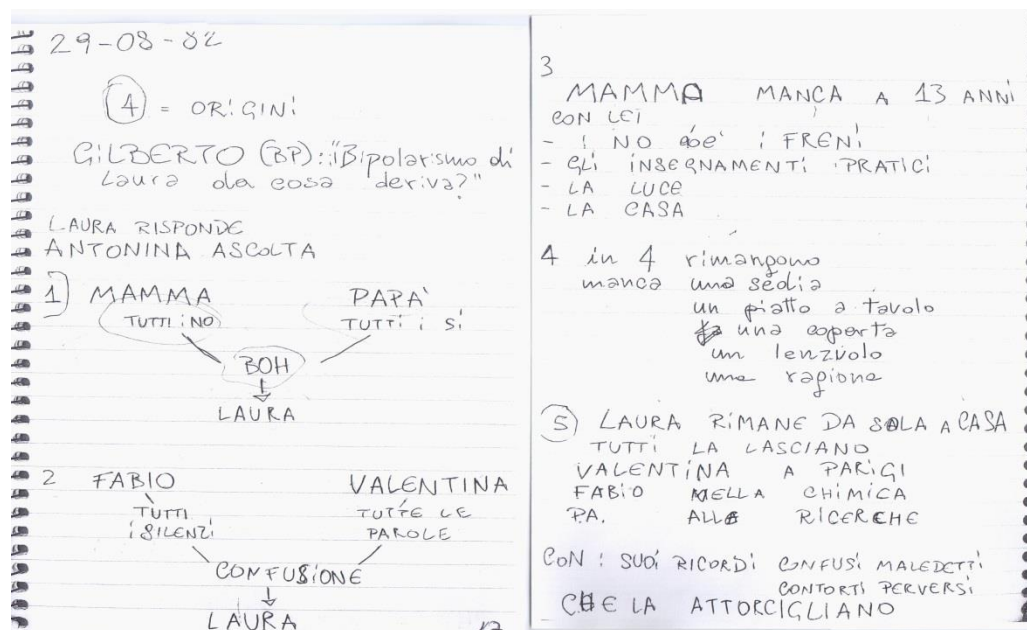 29-08-02
4 = ORIGINI
GILBERTO (BP): "Bipolarismo di
Laura da cosa deriva?"
LAURA RISPONDE
ANTONINA ASCOLTA
1) MAMMA PAPA'
TUTTI i NO TUTTI i Sì
BOH
LAURA
2 FABIO VALENTINA
TUTTI TUTTE LE
i SILENZI PAROLE
CONFUSIONE
LAURA
3
MAMMA MANCA A 13 ANNI
CON LEI
- i NO cioè i FRENI
- GLI INSEGNAMENTI PRATICI
- LA LUCE
- LA CASA
4 in 4 rimangono
manca una sedia
un piatto a tavolo
una coperta
un lenzuolo
una ragione
5) LAURA RIMANE DA SOLA A CASA
TUTTI LA LASCIANO
VALENTINA A PARIGI
FABIO NELLA CHIMICA
PA. ALLE RICERCHE
CON i SUOI RICORDI CONFUSI MALEDETTI
CONTORTI PERVERSI
CHE LA ATTORCIGLIANO